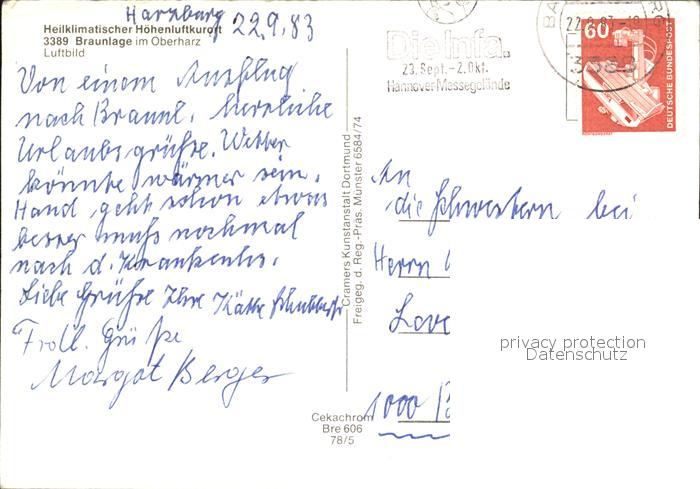 Harzburg 22.9.83
Heilklimatischer Höhenluftkurort
3389 Braunlage im Oberharz
Luftbild
Von einem Ausflug
nach Braunl. herzliche
Urlaubsgrüße. Wetter
könnte wärmer sein.
Hand geht schon etwas
besser muß nochmal
nach d. Krankenhs.
Liebe Grüße Ihre Käthe
Frdl. Grüße
Margot Berger
Cramers Kunstanstalt Dortmund
Freigeg. d. Reg.-Präs. Münster 6584/74
Cekachrom
Bre 606
78/5
Die Infa.
23. Sept.-2. Okt.
Hannover-Messegelände
BA
3388
60
DEUTSCHE BUNDESPOST
An
die Schwestern bei
Herrn
1000 B
privacy protection
Datenschutz